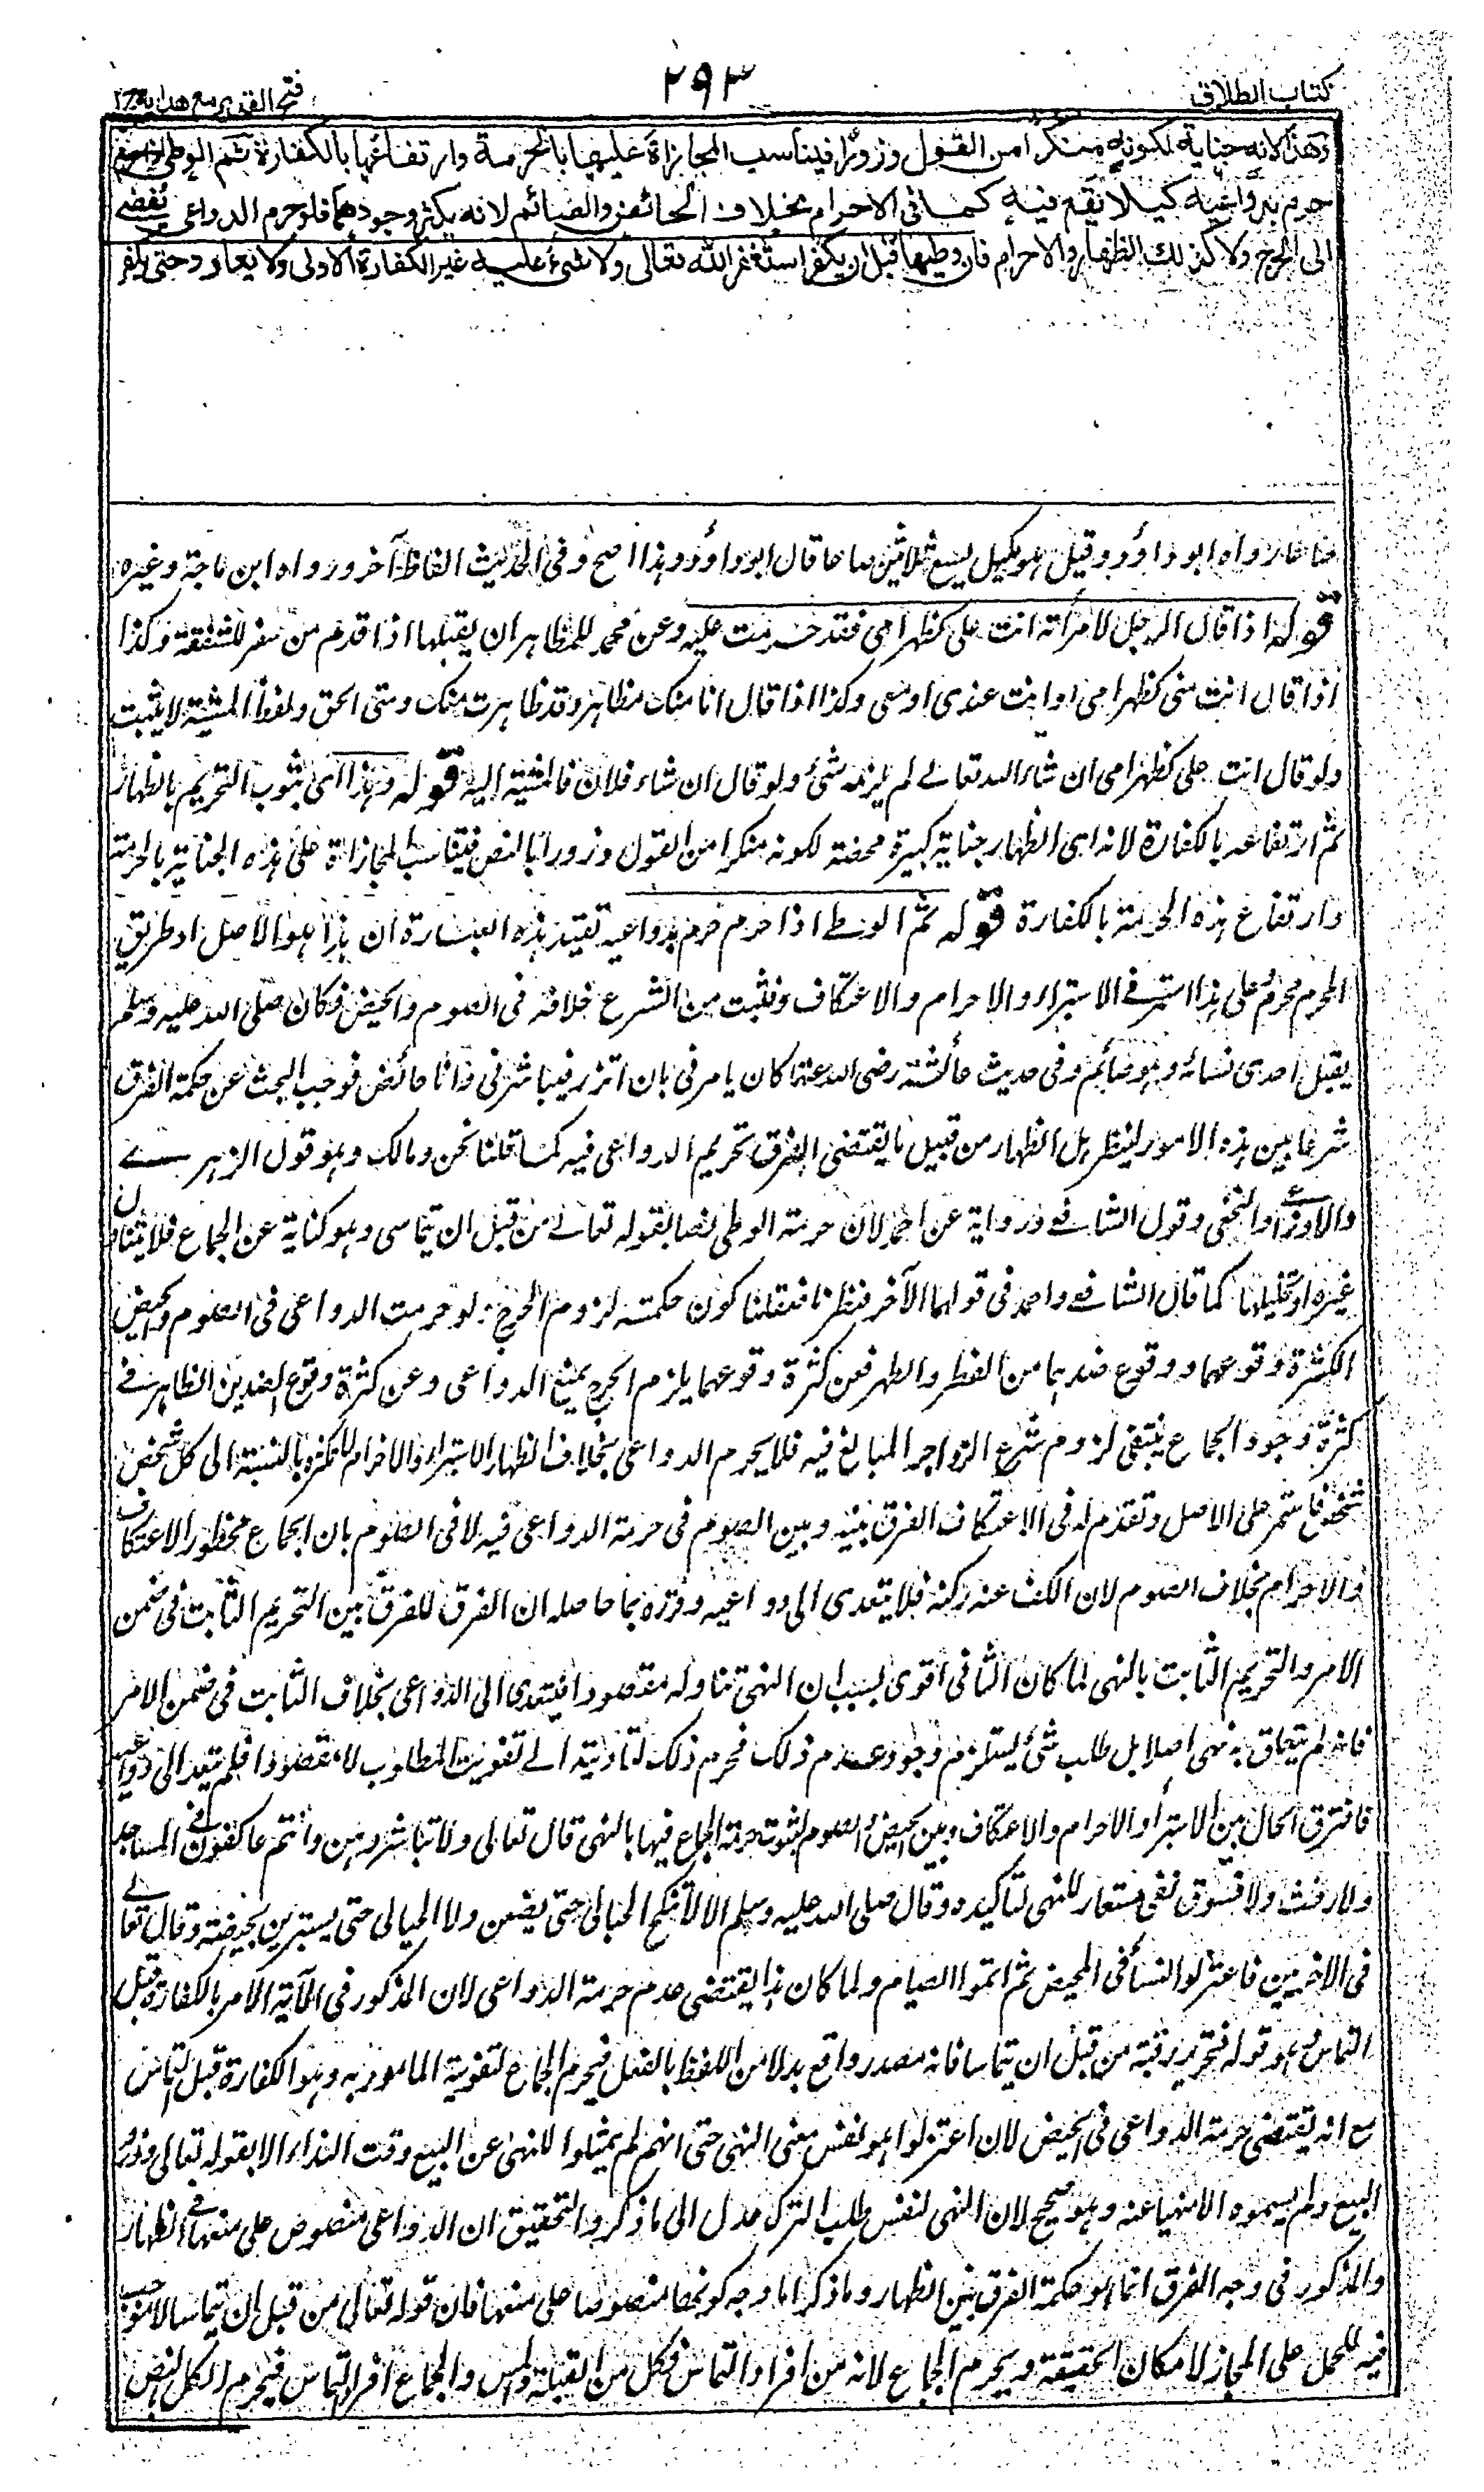 كتاب الطلاق
٢٩٣
فتح القدير مع هدايه ج٢
وهذا لانه جناية لكونه منكرا من القول وزورا فيناسب المجازاة عليها بالحرمة وارتفاعها بالكفارة ثم الوطي اذا حرم
حرم بدواعيه كيلا يقع فيه كما في الاحرام بخلاف الحائض والصائم لانه يكثر وجودهما فلو حرم الدواعي يفضي
الى الحرج ولا كذلك الظهار والاحرام فان وطيها قبل ان يكفر استغفر الله تعالى ولا شئ عليه غير الكفارة الاولى ولا يعاود حتى يكفر
صاعا رواه ابو داؤد وقيل هو مكيل يسع ثلاثين صاعا قال ابو داؤد وهذا اصح وفي الحديث الفاظ آخر ورواه ابن ماجة وغيره
قوله اذا قال الرجل لامرأته انت علي كظهر امي فقد حرمت عليه وعن محمد للمظاهر ان يقبلها اذا قدم من سفر للشفقة وكذا
اذا قال انت مني كظهر امي او انت عندي او معي وكذا اذا قال انا منك مظاهر وقد ظاهرت منك ومتى الحق ولفظ المشية لا يثبت
ولو قال انت علي كظهر امي ان شاء الله تعالے لم يلزمه شئ ولو قال ان شاء فلان فالمشية اليه قوله وهذا اي ثبوت التحريم بالظهار
ثم ارتفاعه بالكفارة لانه اي الظهار جناية كبيرة محضة لكونه منكرا من القول وزورا بالنص فيناسب المجازاة على هذه الجناية بالحرمة
وارتفاع هذه الحرمة بالكفارة قوله ثم الوطے اذا حرم حرم بدواعيه تفيد هذه العبارة ان هذا هو الاصل او طريق
المحرم محرم وعلى هذا استمر في الاستبراء والاحرام والاعتكاف وثبت من الشرع خلافه في الصوم والحيض فكان صلى الله عليه وسلم
يقبل احدى نسائه وهو صائم وفي حديث عائشة رضى الله عنها كان يامرني بان اتزر فيباشرني وانا حائض فوجب البحث عن حكمة الفرق
شرعا بين هذه الامور لينظر هل الظهار من قبيل ما يقتضي الفرق تحريم الدواعي فيه كما قلنا نحن ومالك وهو قول الزهرے
والاوزاعے والنخعي وقول الشافعے ورواية عن احمد لان حرمة الوطي نصا بقوله تعالے من قبل ان يتماسى وهو كناية عن الجماع فلا يتناول
غيره او تحليلها كما قال الشافعے واحمد في قولهما الآخر فنظرنا فعقلنا كون حكمته لزوم الحرج لو حرمت الدواعي في الصوم والحيض
الكثرة وقوعهما ووقوع ضدهما من الفطر والطهر فعن كثرة وقوعهما يلزم الحرج بمنع الدواعي وعن كثرة وقوع الضدين الظاهر في
كثرة وجود الجماع ينتفي لزوم شرع الزواجر المبالغ فيه فلا يحرم الدواعي بخلاف الظهار الاستبراء والاحرام لا تكثره بالنسبة الى كل شخص
شخص فاستمر على الاصل وتقدم له في الاعتكاف الفرق بينه وبين الصوم في حرمة الدواعي فيه لا في الصوم بان الجماع محظور الاعتكاف
والاحرام بخلاف الصوم لان الكف عنه ركنه فلا يتعدى الى دواعيه وقرره بما حاصله ان الفرق للفرق بين التحريم الثابت في ضمن
الامر والتحريم الثابت بالنهي لما كان الثاني اقوى بسبب ان النهي تناوله مقصودا فيتعدى الى الدواعي بخلاف الثابت في ضمن الامر
فانه لم يتعلق به نهي اصلا بل طلب شئ يستلزم وجوده عدم ذلك فحرم ذلك لتأديته الے تفويت المطلوب لا مقصودا فلم يتعد الى دواعيه
فافترق الحال بين الاستبراء والاحرام والاعتكاف وبين الحيض والصوم لثبوت حرمة الجماع فيها بالنهي قال تعالى ولا تباشروهن وانتم عاكفون في المساجد
ولا رفث ولا فسوق نفي مستعار للنهي لتاكيده وقال صلى الله عليه وسلم الا لا تنكح الحبالى حتى يضعن ولا الحيالى حتى يستبرين بحيضة وقال تعالے
في الاخيرين فاعتزلوا النسأ في المحيض ثم اتموا الصيام ولما كان هذا يقتضي عدم حرمة الدواعي لان المذكور في الآية الامر بالكفارة قبل
التماس وهو قوله فتحرير رقبة من قبل ان يتماسا فانه مصدر واقع بدلا من اللفظ بالفعل فيحرم الجماع لتفويته المامور به وهو الكفارة قبل التماس
مع انه يقتضي حرمة الدواعي في الحيض لان اعتزلوا هو نفس معنى النهي حتى انهم لم يمثلوا للنهي عن البيع وقت النداء الا بقوله تعالى وذروا
البيع ولم يسموه الا منهيا عنه وهو صحيح لان النهي لنفس طلب الترك عدل الى ما ذكر والتحقيق ان الدواعي منصوص على منعها في الظهار
والمذكور في وجه الفرق انما هو حكمة الفرق بين الظهار وما ذكر اما وجه كونها منصوصا على منعها فان قوله تعالى من قبل ان يتماسا لا موجب
فيه للحمل على المجاز لامكان الحقيقة ويحرم الجماع لانه من افراد التماس فكل من القبلة والمس والجماع افراد التماس فيحرم الكل بالنص